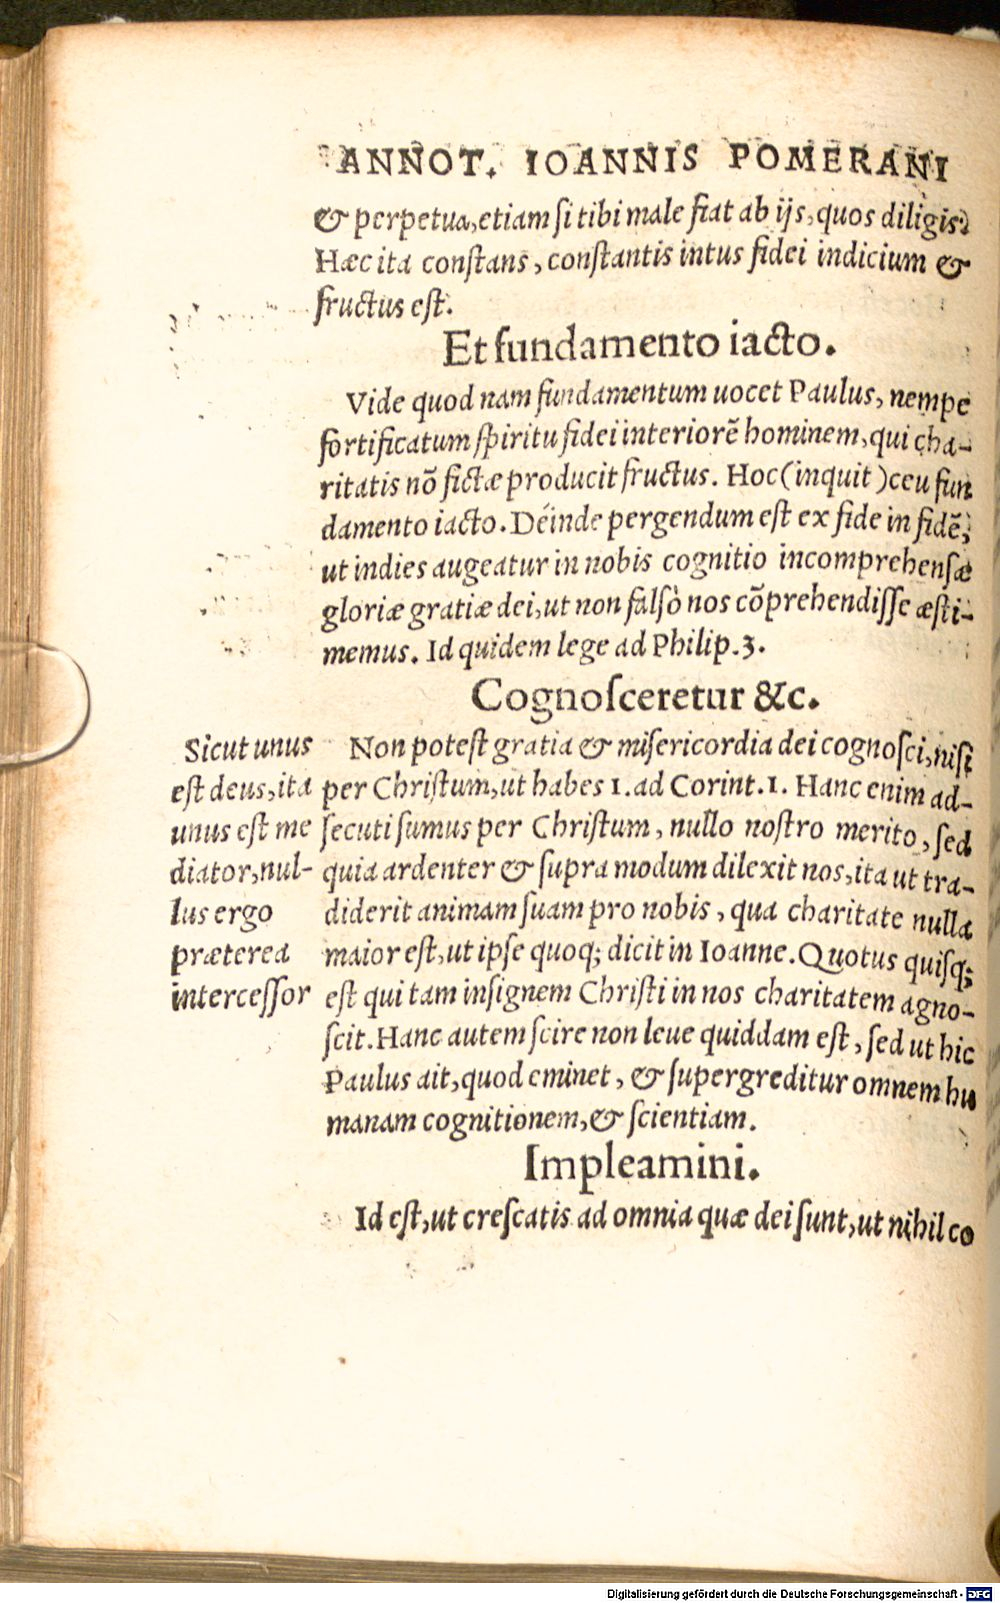 ANNOT. IOANNIS POMERANI
& perpetua, etiam si tibi male fiat ab ijs, quos diligis:
Hæc ita constans, constantis intus fidei indicium &
fructus est.
Et fundamento iacto.
Vide quod nam fundamentum uocet Paulus, nempe
fortificatum spiritu fidei interiorẽ hominem, qui cha-
ritatis nõ fictæ producit fructus. Hoc (inquit) ceu fun
damento iacto. Deinde pergendum est ex fide in fidẽ,
ut indies augeatur in nobis cognitio incomprehensæ
gloriæ gratiæ dei, ut non falsò nos cõprehendisse æsti-
memus. Id quidem lege ad Philip. 3.
Cognosceretur &c.
Non potest gratia & misericordia dei cognosci, nisi
per Christum, ut habes 1. ad Corint. 1. Hanc enim ad-
secuti sumus per Christum, nullo nostro merito, sed
quia ardenter & supra modum dilexit nos, ita ut tra-
diderit animam suam pro nobis, qua charitate nulla
maior est, ut ipse quoq; dicit in Ioanne. Quotus quisq;
est qui tam insignem Christi in nos charitatem agno-
scit. Hanc autem scire non leue quiddam est, sed ut hic
Paulus ait, quod eminet, & supergreditur omnem hu
manam cognitionem, & scientiam.
Sicut unus
est deus, ita
unus est me
diator, nul-
lus ergo
præterea
intercessor
Impleamini.
Id est, ut crescatis ad omnia quæ dei sunt, ut nihil co
Digitalisierung gefördert durch die Deutsche Forschungsgemeinschaft - DFG